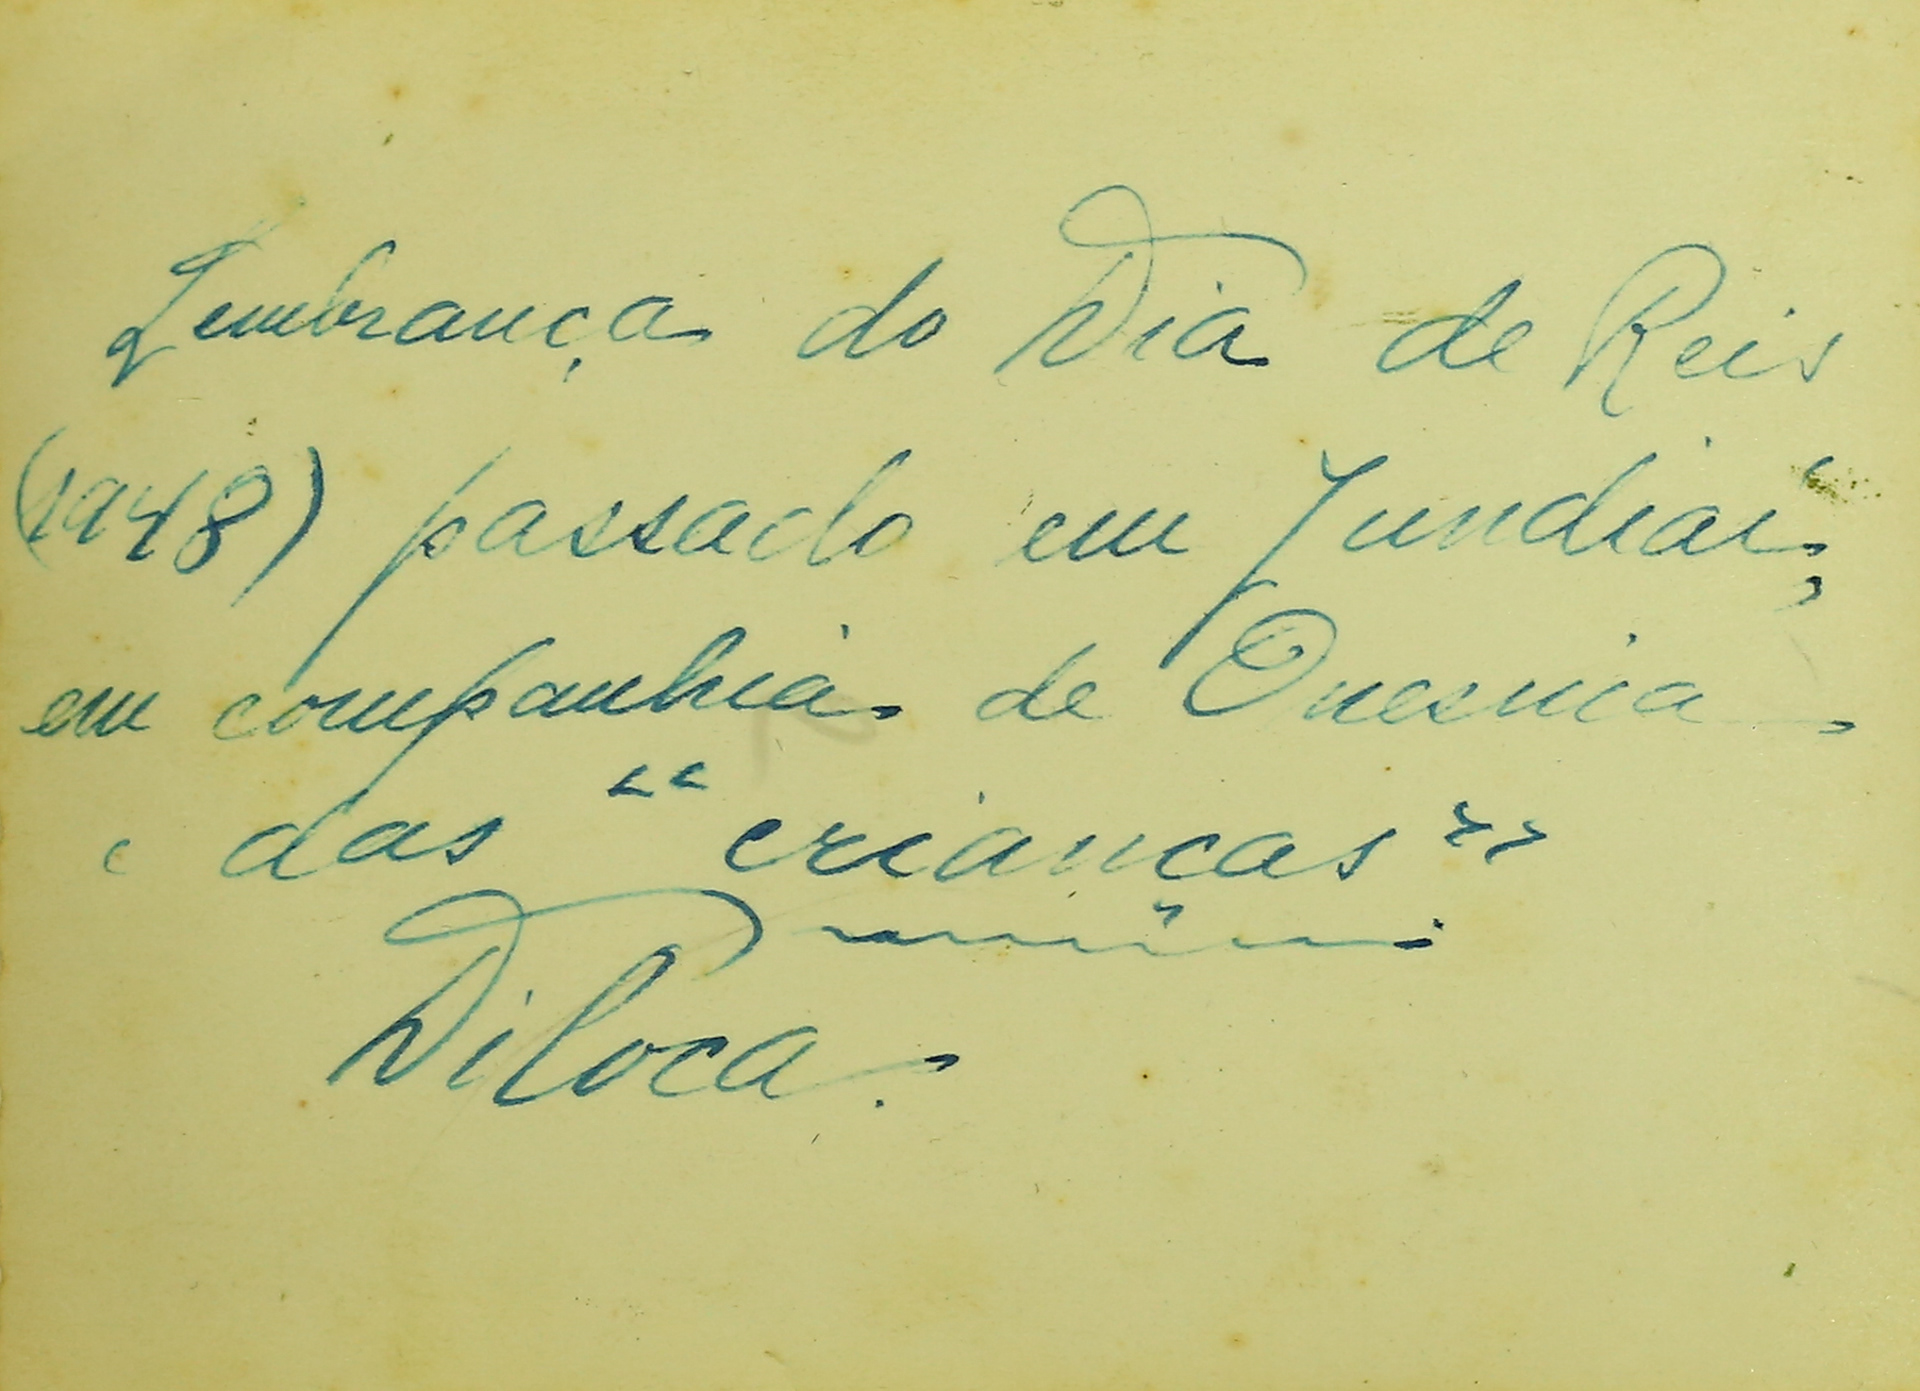 Lembrança do Dia de Reis
(1948) passado em Jundiaí,
em companhia de Onesima
e das "crianças"
Diloca.